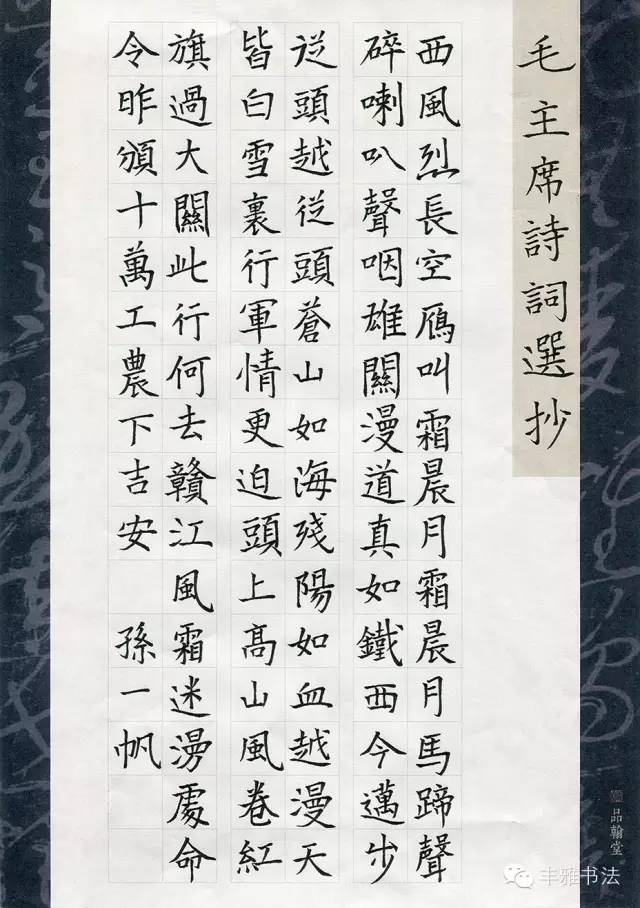 毛主席詩詞選抄
西風烈長空鴈叫霜晨月霜晨月馬蹄聲
碎喇叭聲咽雄關漫道真如鐵西今邁步
從頭越從頭蒼山如海殘陽如血越漫天
皆白雪裏行軍情更迫頭上髙山風卷紅
旗過大關此行何去贛江風霜迷漫處命
令昨頒十萬工農下吉安 孫一帆
品翰堂
丰雅书法